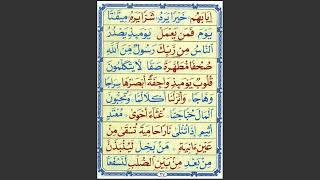 إِيَابَهُمْ خَيْرًا يَرَهُ شَرًّا يَرَهُ مِيقَاتًا
يَوْمَ فَمَن يَعْمَلْ يَوْمَئِذٍ يَصْدُرُ
النَّاسُ مِن رَّبِّكَ رَسُولٌ مِنَ اللّٰهِ
صُحُفًا مُّطَهَّرَةً صَفًّا لَّا يَتَكَلَّمُونَ
قُلُوبٌ يَوْمَئِذٍ وَاجِفَةٌ أَبْصَارُهَا سِرَاجًا
وَهَّاجًا وَأَنزَلْنَا أَكْلًا لَّمًّا وَتُحِبُّونَ
الْمَالَ حُبًّا جَمًّا غُثَاءً أَحْوَى مُعْتَدٍ
أَثِيمٍ إِذَا تُتْلَى نَارًا حَامِيَةً تُسْقَى مِنْ
عَيْنٍ ءَانِيَةٍ مَن بَخِلَ لَيُنبَذَنَّ
مِن بَعْدِ مِن بَيْنِ الصُّلْبِ لَنَسْفَعًا